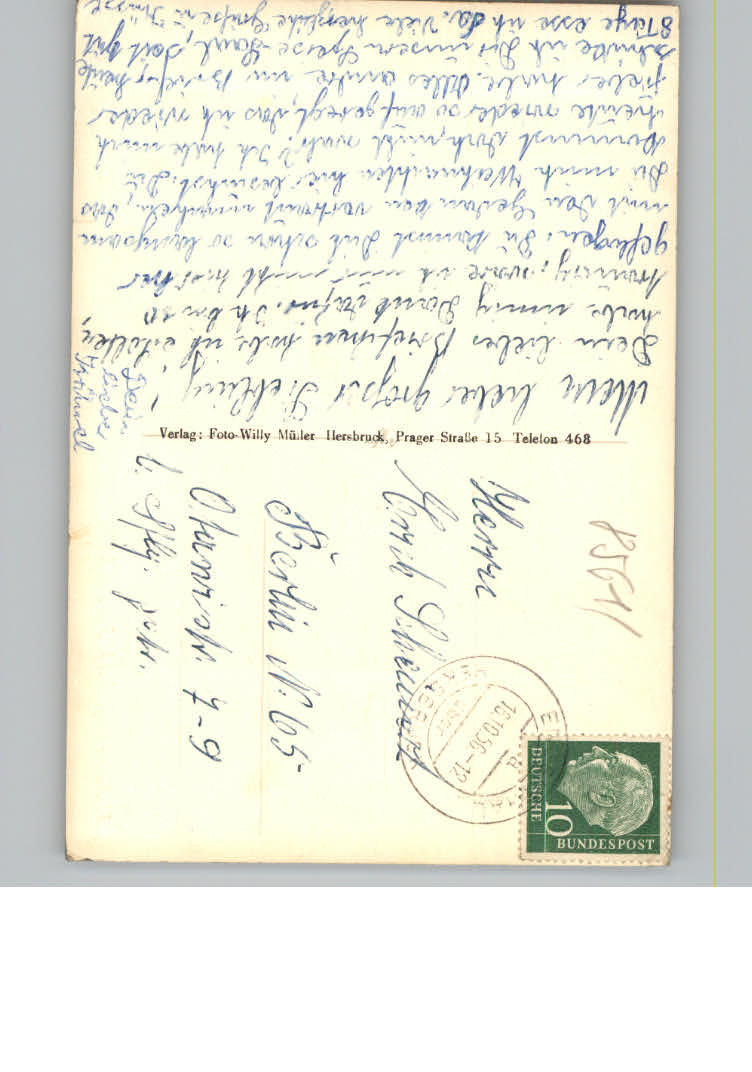 Mein lieber großer Liebling!
Dein liebes Briefchen habe ich erhalten,
habe innig Dank dafür. Ich bin so
traurig, wäre ich nur nicht hier her
geflogen. Du kannst Dich schon so langsam
mit den Gedanken vertraut machen, das
Du mich Weihnachten hier besuchst. Du
kommst doch, nicht wahr? Ich habe mich
heute wieder so aufgeregt, das ich wieder
Fieber habe. Alles andre im Brief. heute
schicke ich Dir unsern Speise-Saal, seit gut
8 Tage esse ich da. Viele herzliche Grüße u. Küsse
Deine
liebe
Verlag: Foto-Willy Müller Hersbruck, Prager Straße 15 Telefon 468
Herrn
Erich
Berlin N. 65
Otawistr. 7-9
b.
8561
16.10.56-12
DEUTSCHE
BUNDESPOST
10